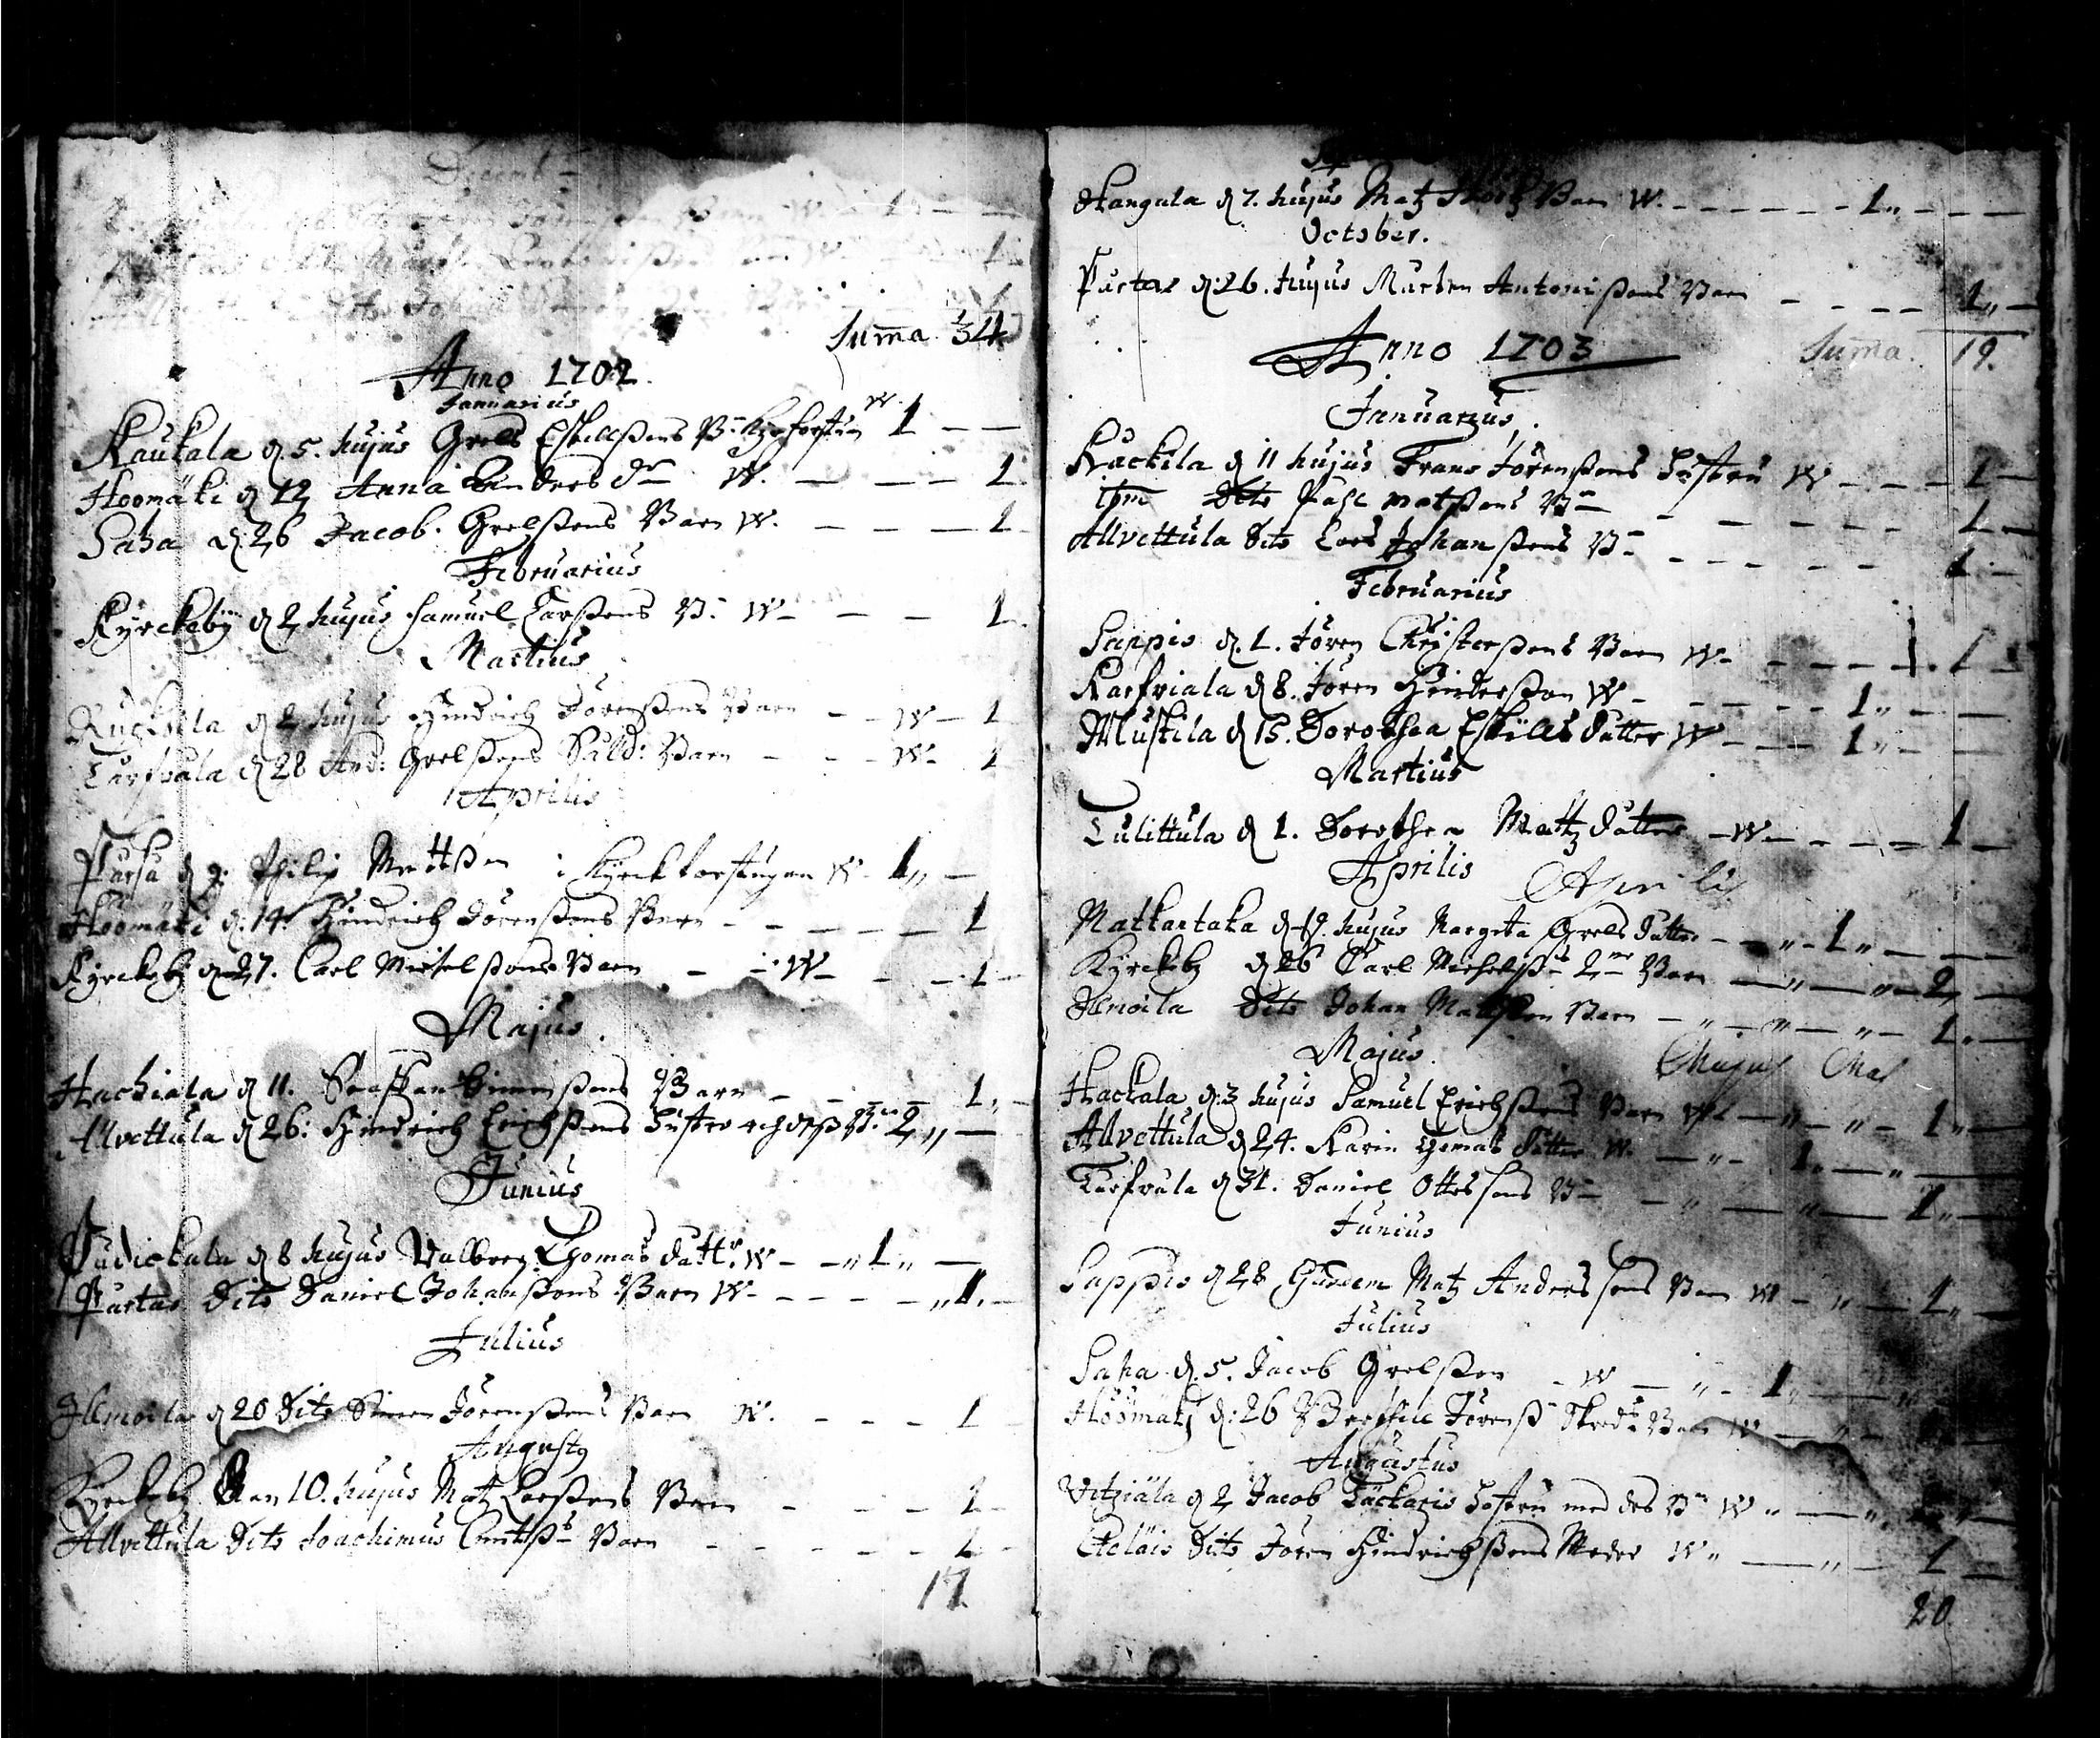 Decemb
Barn W 1
1
Suma 34
Anno 1702
Januarius
Kaukala d. 5. hujus Grels Eskillßons B: W. 1
Hoomäki d 12 Anna Andersdr W. 1
Saha d. 26 Jacob Grelßons Barn W. 1
Februarius
Kyrckeby d 2 hujus Samuel Larßons B: W 1
Martius
Ruckila d 2 hujus Hindrich Jörenßons Barn W 1
Tarfvala d 28 And: Grelßons Såld: Barn W 1
Aprilis
Parsa d 9. Philip Mattßon i Kyrckforstugun W. 1
Hoomäki d. 14 Hindrich Jörenßons Barn 1
Kyrckeby d 27. Carl Michelßons Barn W 1
Majus
Hachiala d 11. Staffan Simonßons Barn 1
Allvettula d 26: Hindrich Erichßons Hustro och deß B: 2
Junius
Pudickala d 8 hujus Valborg Thomas datt: W 1
Partas Dito Daniel Johanßons Barn W 1
Julius
Ilmoila d 20 Dito Simon Jörenßons Barn W. 1
Augusty
Kyrckeby den 10. hujus Matz Larßons Barn 1
Allvettula Dito Joachimus Barn 1
17
Sep
Kangala d 7. hujus Matz Barn W. 1
October.
Partas d: 26. hujus Marten Antonißons Barn 1
Suma. 19.
Anno 1703
Januarius
Ruckila d 11 hujus Frans Jörenßons Hustru W 1
ibm Dito Påhl Matßons B 1
Allvettula Dito Lars Johanßons B 1
Februarius
Sappis d. 1. Jören Christerßons Barn W. 1
Karfviala d 8. Jören Hinderßon W 1
Muskila d 15. Dorothea Eskills datter W 1
Martius
Tulittula d 1. Dorothea Mattz datter W 1
Aprilis Aprilis
Matkantaka d 19. hujus Margeta Grels datter 1
Kyrckeby d 26 Carl Michelß 2ne Barn 2
Ilmoila Dito Johan Mattßon Barn 1
Majus. Majus Maj
Hackala d: 3 hujus Samuel Erichßons Barn W 1
Allvettula d 24. Karin Thomas datter W. 1
Tarfvala d 31. Daniel Ottes sons B 1
Junius
Sappis d 28 Matz Anders sons Barn W 1
Julius
Saha d. 5. Jacob Grelßon W 1
Hoomäki d: 26 Berthil Jörenß Skred: Barn W
Augustus
Vitziäla d 2 Jacob Hustru med des B W
Eteläis Dito Jören Hindrichßons Moder W 1
20